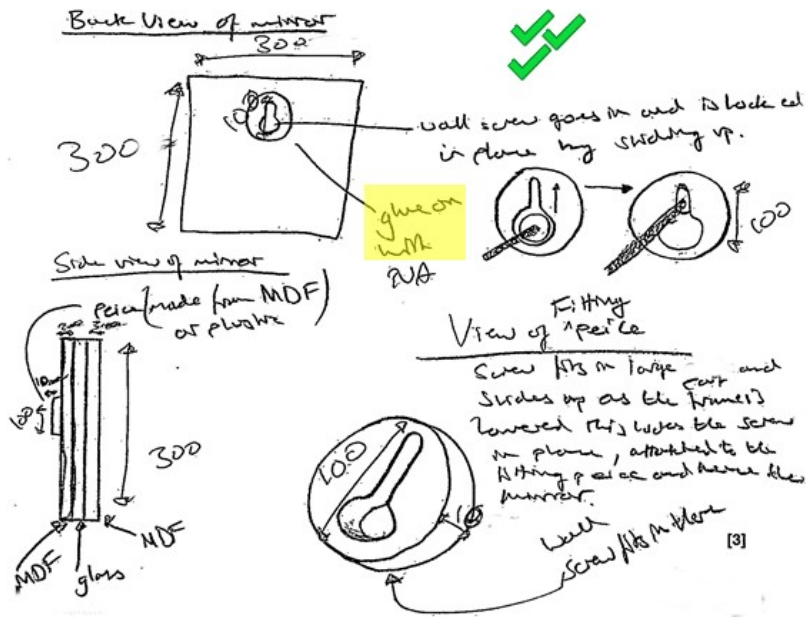 Back View of mirror
300
100
300
wall screw goes in and is locked
in place by sliding up.
glue on
with
PVA
100
Side view of mirror
peice (made from MDF
or plastic)
300
100
MDF
glass
MDF
View of Fitting peice
Screw fits in large part and
slides up as the frame is
lowered this locks the screw
in place, attached to the
fitting peice and hence the
mirror.
100
10
wall
screw fits in there
[3]